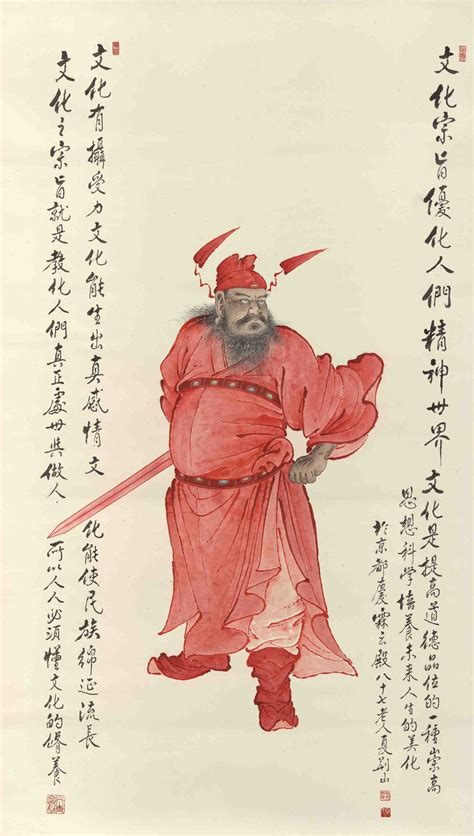 文化宗旨優化人們精神世界文化是提高道德品位的一種崇高
思想科学培養未来人生的美化
於京都慶霖云殿八十七老人夏荆山
文化有攝受力文化能生出真感情文化能使民族綿延流長
文化之宗旨就是教化人們真正處世與做人.所以人人必須懂文化的脩養